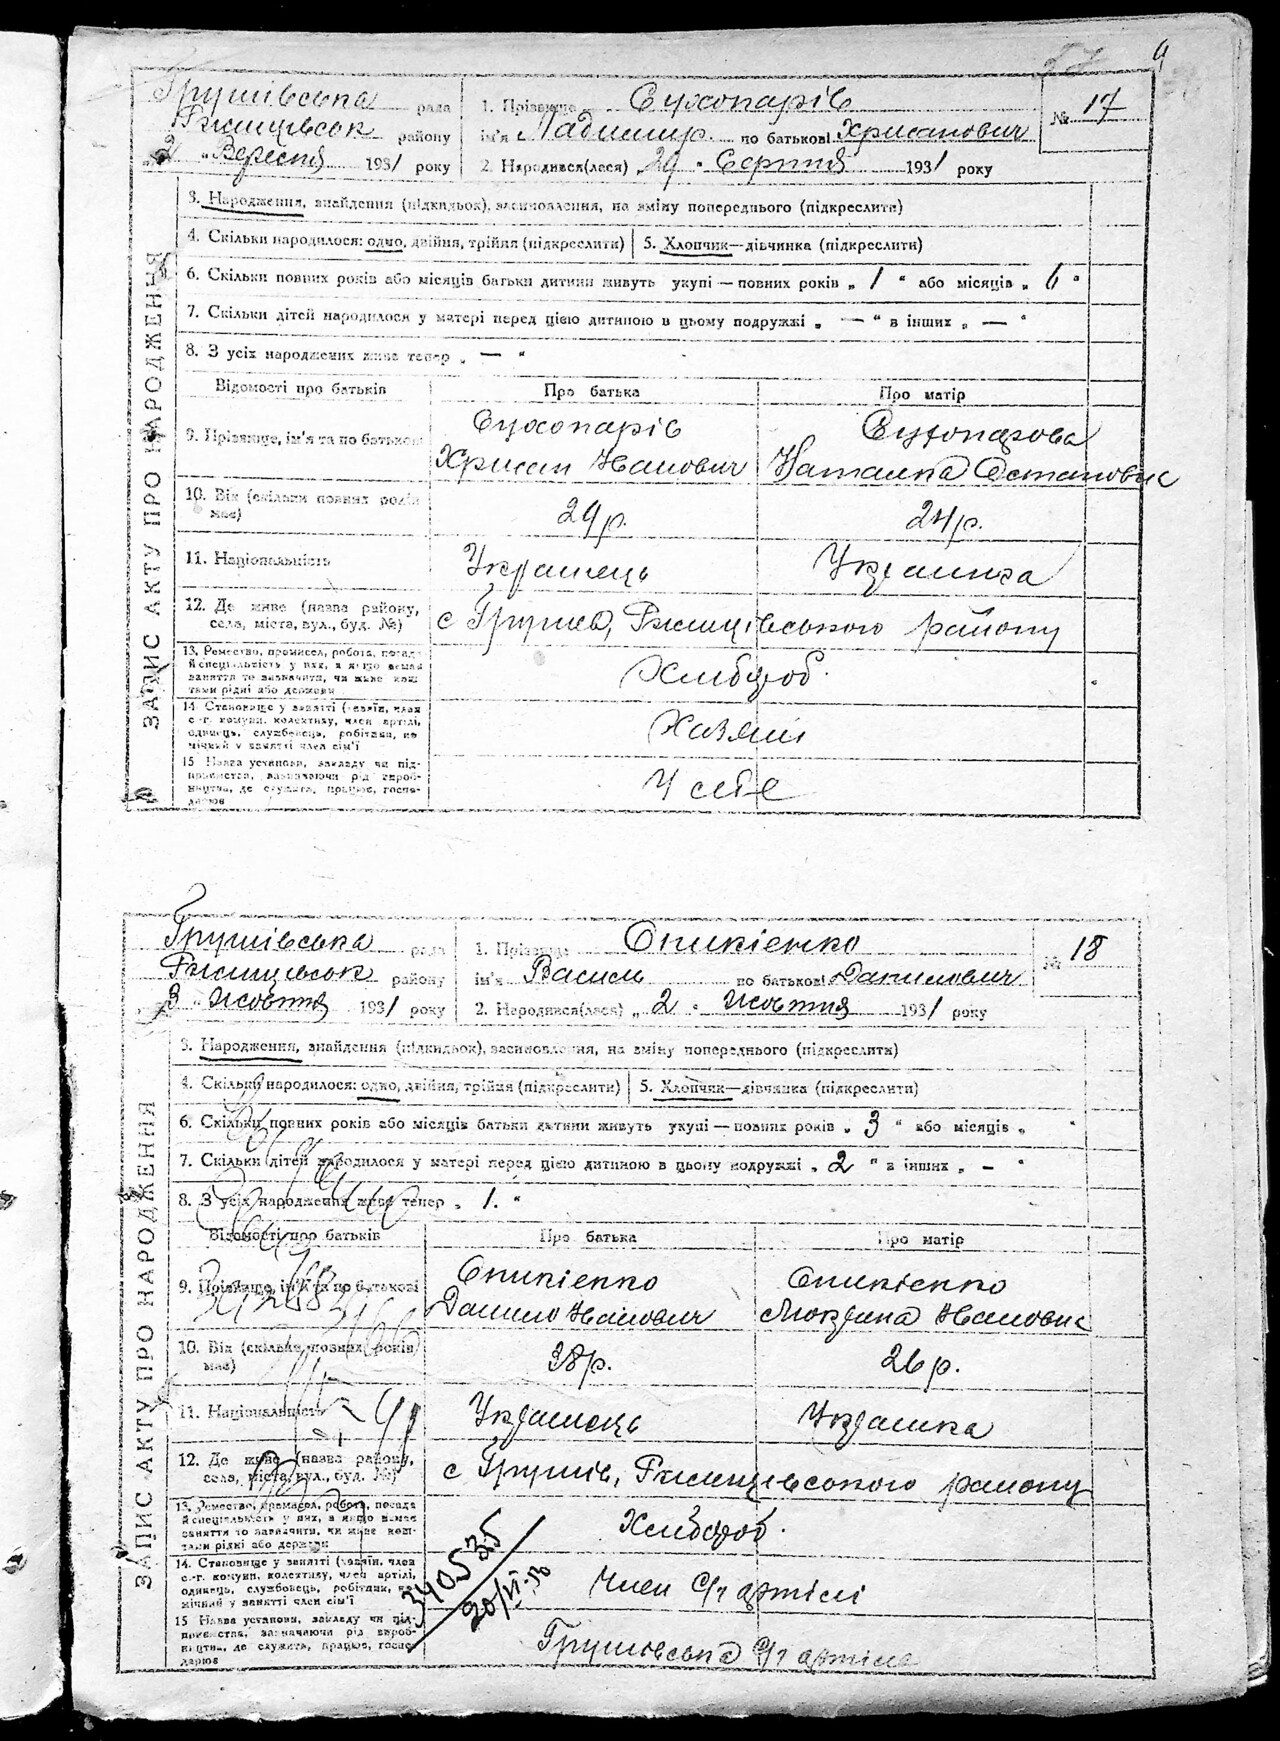 4
Грушівська рада
Ржищівськ району
"2" Вересня 1931 року
1. Прізвище Сухопарів
ім'я Ладимир по батькові Хрисанович
2. Народився(лася) "29" Серпня 1931 року
№ 17
ЗАПИС АКТУ ПРО НАРОДЖЕННЯ
3. Народження, знайдення (підкидьок), засиновлення, на зміну попереднього (підкреслити)
4. Скільки народилося: одно, двійня, трійня (підкреслити)
5. Хлопчик—дівчинка (підкреслити)
6. Скільки повних років або місяців батьки дитини живуть укупі — повних років „ 1 “ або місяців „ 6 “
7. Скільки дітей народилося у матері перед цією дитиною в цьому подружжі „ — “ в інших „ — “
8. З усіх народжених живе тепер „ — “
Відомості про батьків Про батька Про матір
9. Прізвище, ім'я та по батькові
Сухопарів
Хрисан Іванович
Сухопарова
Наталка Остаповна
10. Вік (скільки повних років має) 29 р. 24 р.
11. Національність Українець Українка
12. Де живе (назва району,
села, міста, вул., буд. №)
с Грушів, Ржищівського району
13. Ремество, промисел, робота, посада
й спеціяльність у них, а якщо немає
заняття то зазначити, чи живе кош-
тами рідні або держави
Хлібороб.
14. Становище у занятті (хазяїн, член
с.-г. комуни, колективу, член артілі,
одинець, службовець, робітник, по-
мічний у занятті член сім'ї
Хазяїн
15. Назва установи, закладу чи під-
приємства, зазначаючи рід вироб-
ництва, де служить, працює, госпо-
дарює
У себе
Грушівська рада
Ржищівськ району
"3" Жовтня 1931 року
1. Прізвище Опикієнко
ім'я Василь по батькові Данилович
2. Народився(лася) „ 2 “ Жовтня 1931 року
№ 18
ЗАПИС АКТУ ПРО НАРОДЖЕННЯ
3. Народження, знайдення (підкидьок), засиновлення, на зміну попереднього (підкреслити)
4. Скільки народилося: одно, двійня, трійня (підкреслити)
5. Хлопчик—дівчинка (підкреслити)
6. Скільки повних років або місяців батьки дитини живуть укупі — повних років „ 3 “ або місяців „ “
7. Скільки дітей народилося у матері перед цією дитиною в цьому подружжі „ 2 “ в інших „ – “
8. З усіх народжених живе тепер „ 1. “
Відомості про батьків Про батька Про матір
9. Прізвище, ім'я та по батькові
Опикієнко
Данило Іванович
Опикієнко
Мокрина Івановна
10. Вік (скільки повних років має) 38 р. 26 р.
11. Національність Українець Українка
12. Де живе (назва району,
села, міста, вул., буд. №)
с Грушів, Ржищівського району
13. Ремество, промисел, робота, посада
й спеціяльність у них, а якщо немає
заняття то зазначити, чи живе кош-
тами рідні або держави
Хлібороб.
14. Становище у занятті (хазяїн, член
с.-г. комуни, колективу, член артілі,
одинець, службовець, робітник, по-
мічний у занятті член сім'ї
Член С/г артілі
15. Назва установи, закладу чи під-
приємства, зазначаючи рід вироб-
ництва, де служить, працює, госпо-
дарює
Грушівська С/г артіль
340535
20/VI-50